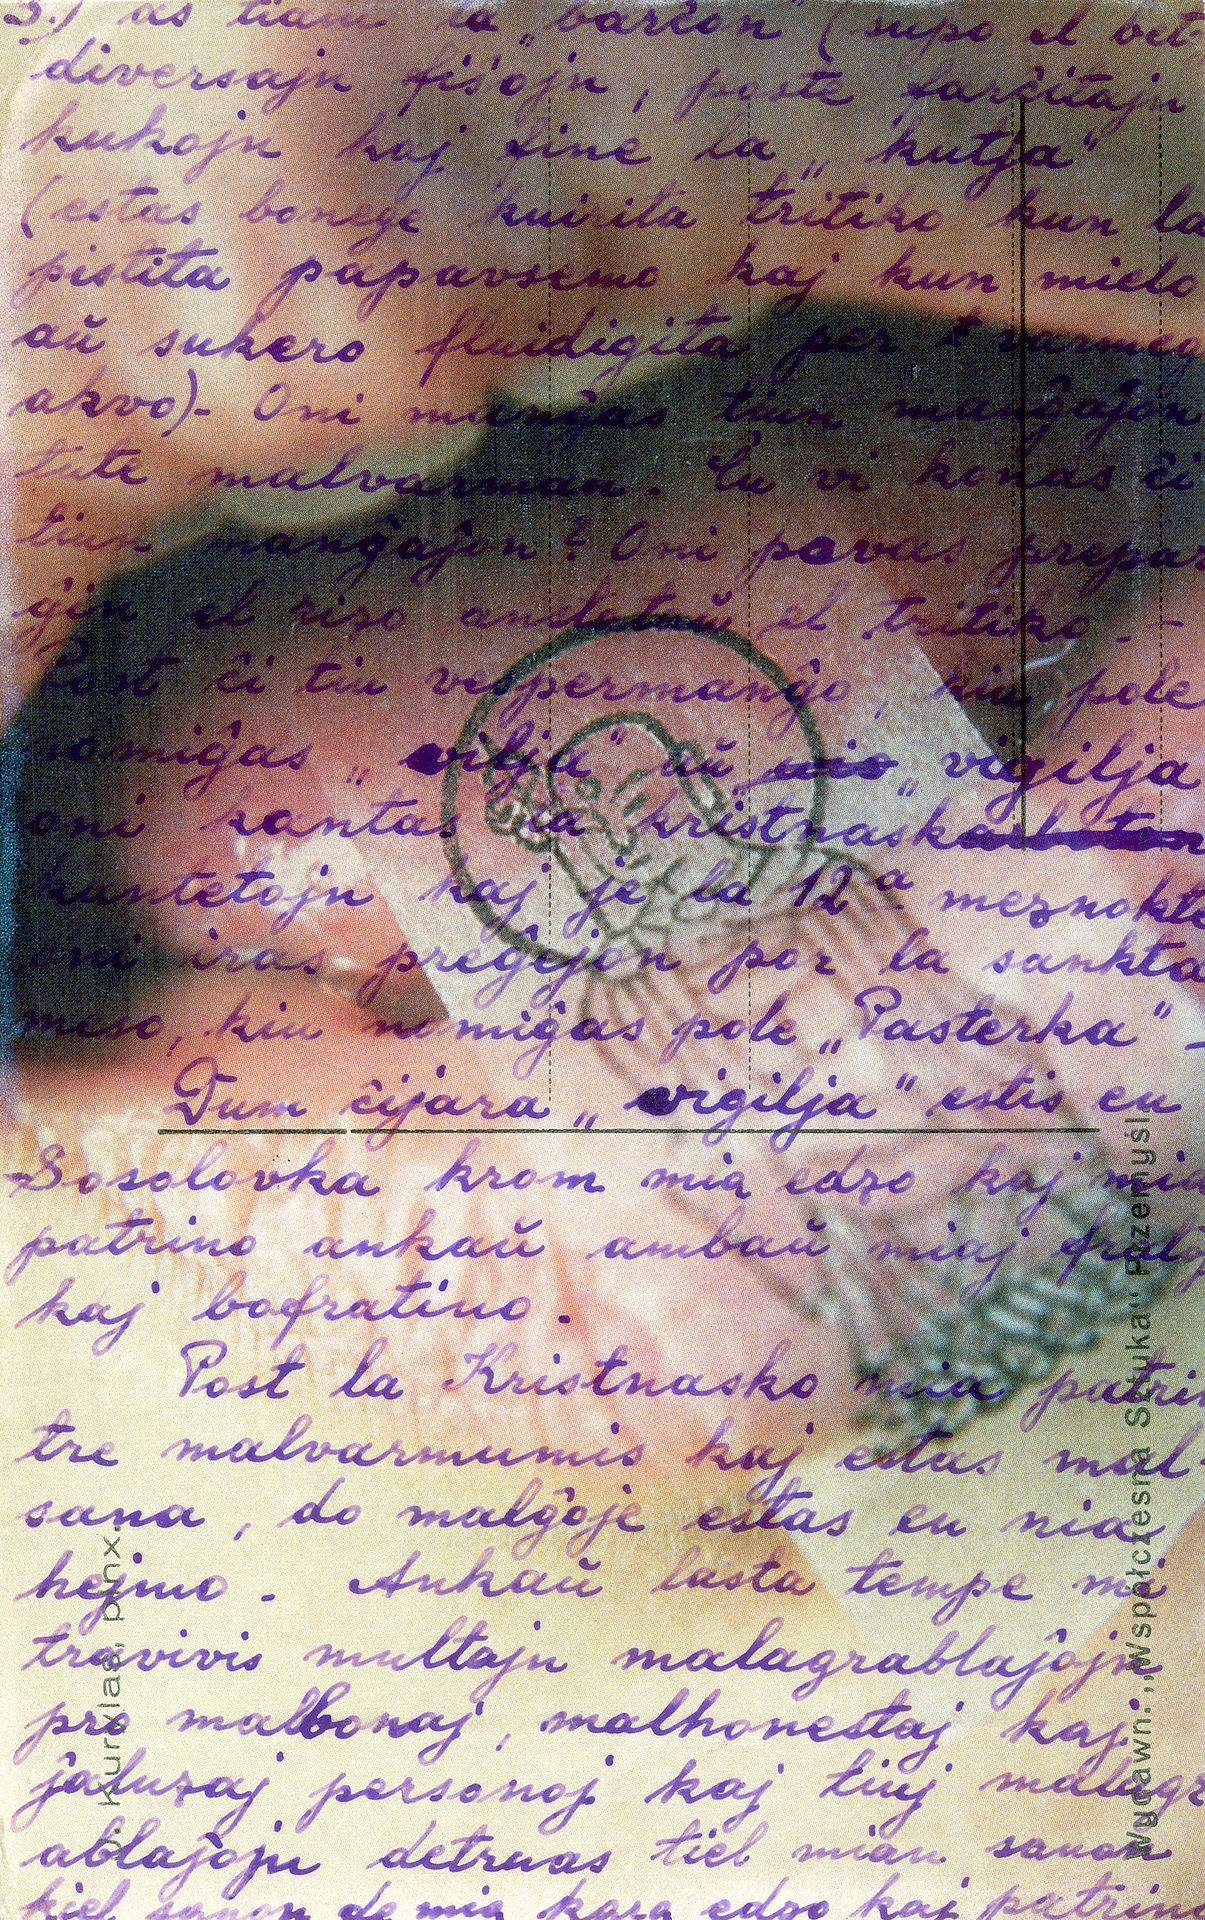 3.) as tiam la „barĉon" (supo el bet
diversajn fiŝojn, poste farĉitajn
kukojn kaj fine la „kutja"
(estas bonege kuirita tritiko kun la
pistita papavsemo kaj kun mielo
aŭ sukero fluidigita per varmeg
akvo)- Oni manĝas tiun manĝaĵon
tute malvarman. Ĉu vi konas ĉi
tiun manĝaĵon? Oni povas prepar
ĝin el rizo anstataŭ el tritiko.-
Post ĉi tiu vespermanĝo, kiu pole
nomiĝas „vilja" aŭ „vigilja
oni kantas la kristnask
kantetojn kaj je la 12ª meznokte
oni iras preĝejon por la sankta
meso, kiu nomiĝas pole „Pasterka" -
Dum ĉijara „vigilja" estis en
Sosolovka krom mia edzo kaj mia
patrino ankaŭ ambaŭ miaj fratoj
kaj bofratino.
Post la Kristnasko mia patrin
tre malvarmumis kaj estas mal-
sana, do malĝoje estas en nia
hejmo. Ankaŭ lasta tempe mi
travivis multajn malagrablaĵojn
pro malbonaj, malhonestaj kaj
ĵaluzaj personoj kaj tiuj malagr
ablaĵojn detruas tiel mian sanon
kiel sanon de mia kara edzo kaj patrino
Kurylas, pinx.
Wydawn. „Współczesna Sztuka" Przemyśl.